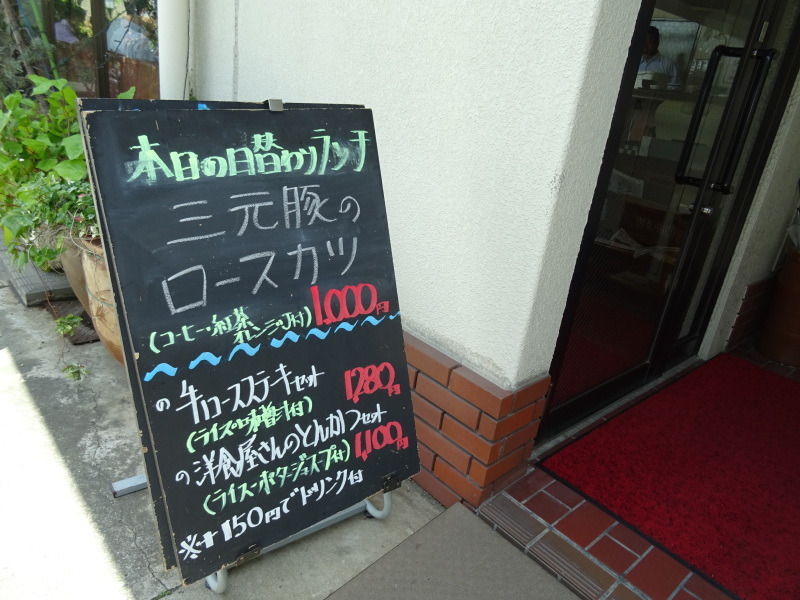 本日の日替わりランチ
三元豚の
ロースカツ
(コーヒー・紅茶
オレンジ・J付) 1,000円
の 牛ロースステーキセット 1,280円
(ライス・味噌汁付)
の 洋食屋さんのとんかつセット
(ライス・ポタージュスープ付) 1,100円
※+150円でドリンク付